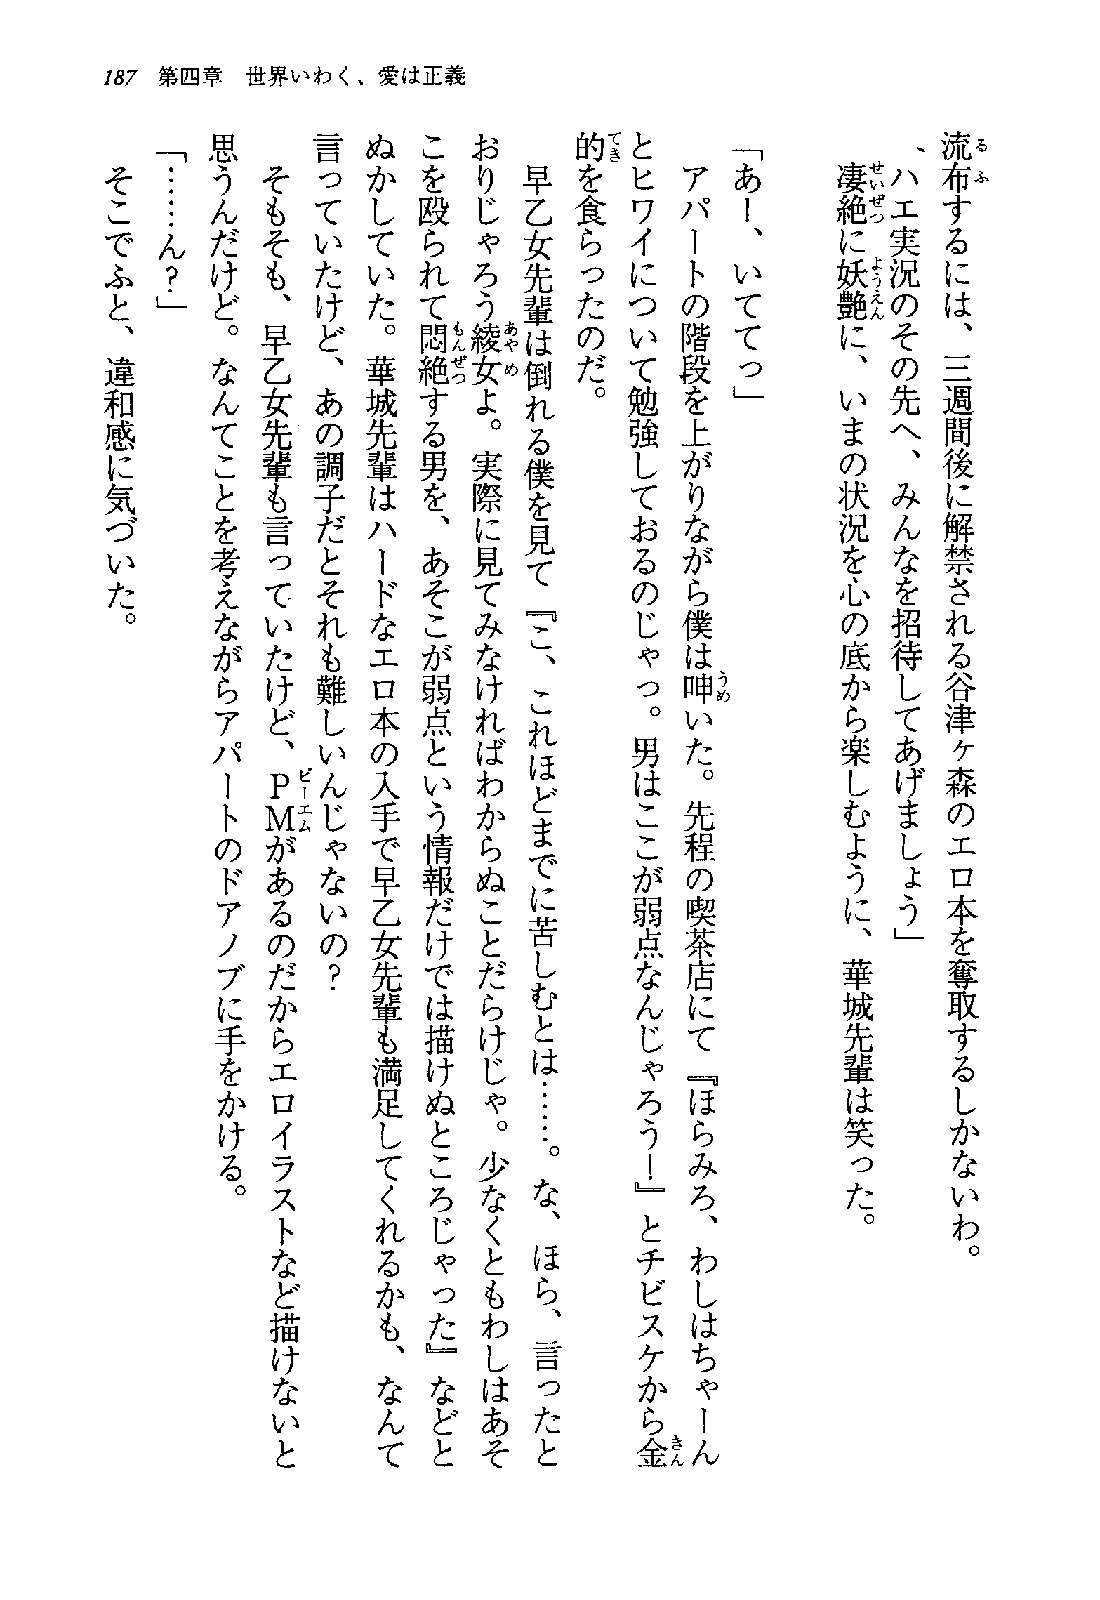 187　第四章　世界いわく、愛は正義
流布するには、三週間後に解禁される谷津ヶ森のエロ本を奪取するしかないわ。
、ハエ実況のその先へ、みんなを招待してあげましょう」
凄絶に妖艶に、いまの状況を心の底から楽しむように、華城先輩は笑った。
「あー、いててっ」
アパートの階段を上がりながら僕は呻いた。先程の喫茶店にて『ほらみろ、わしはちゃーん
とヒワイについて勉強しておるのじゃっ。男はここが弱点なんじゃろう！』とチビスケから金
的を食らったのだ。
早乙女先輩は倒れる僕を見て『こ、これほどまでに苦しむとは……。な、ほら、言ったと
おりじゃろう綾女よ。実際に見てみなければわからぬことだらけじゃ。少なくともわしはあそ
こを殴られて悶絶する男を、あそこが弱点という情報だけでは描けぬところじゃった』などと
ぬかしていた。華城先輩はハードなエロ本の入手で早乙女先輩も満足してくれるかも、なんて
言っていたけど、あの調子だとそれも難しいんじゃないの？
そもそも、早乙女先輩も言っていたけど、PMがあるのだからエロイラストなど描けないと
思うんだけど。なんてことを考えながらアパートのドアノブに手をかける。
「……ん？」
そこでふと、違和感に気づいた。